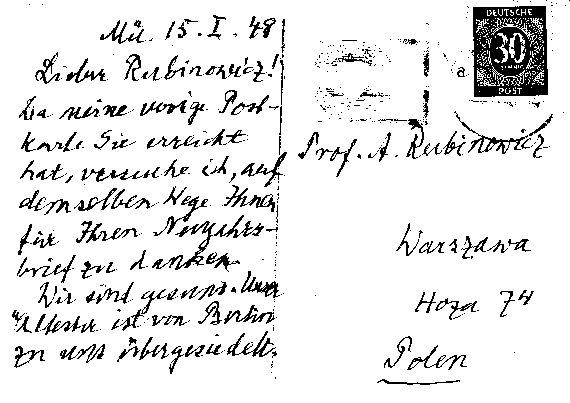 Mü. 15. I. 48
Lieber Rubinowicz!
Da meine vorige Post-
karte Sie erreicht
hat, versuche ich, auf
demselben Wege Ihnen
für Ihren Neujahrs-
brief zu danken.
Wir sind gesund. Unser
Ältester ist von Berlin
zu uns übergesiedelt.
DEUTSCHE
30
POST
a
Prof. A. Rubinowicz
Warszawa
Hoża 74
Polen